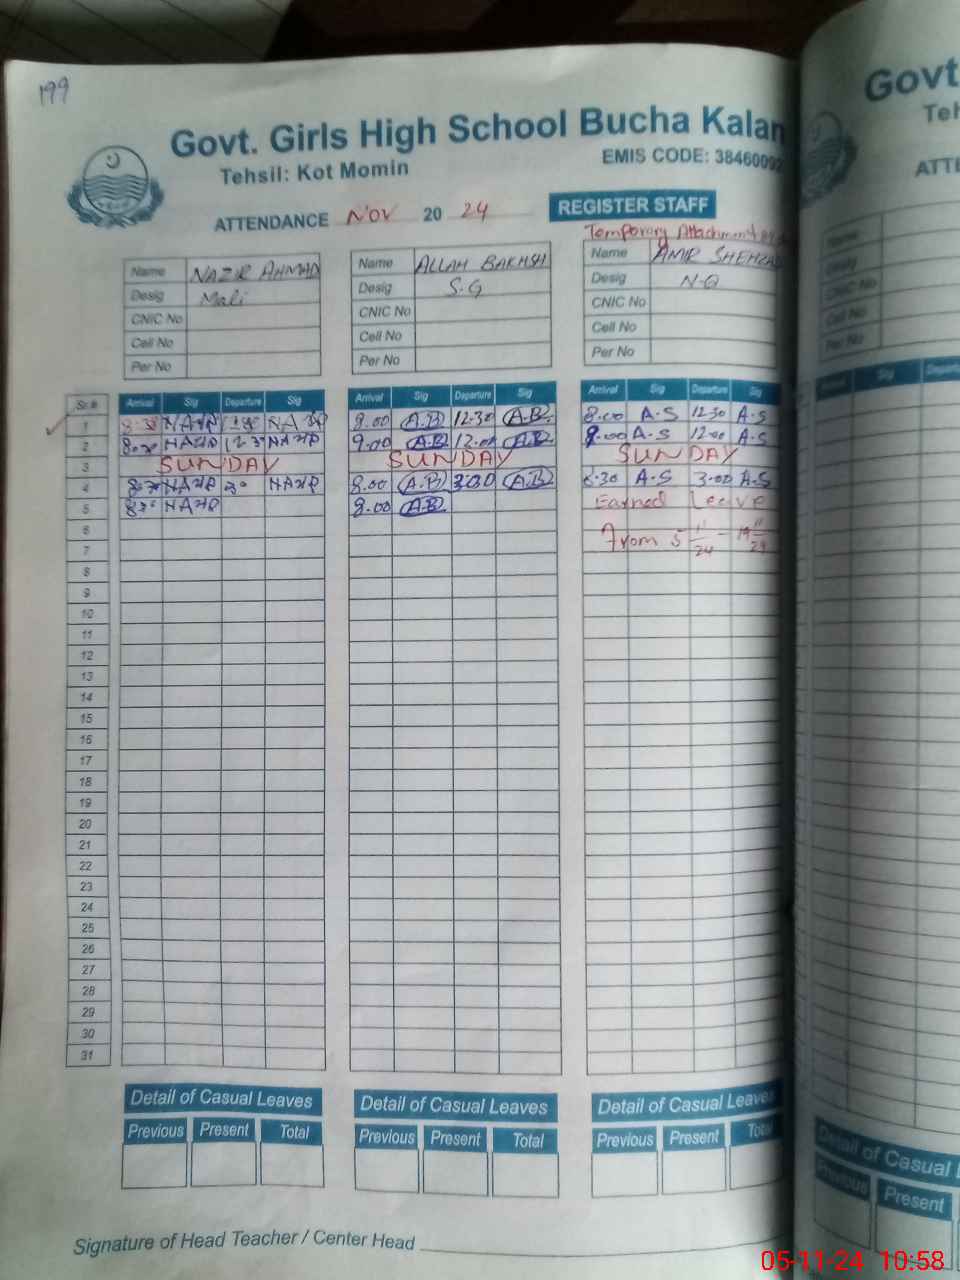 199
Govt. Girls High School Bucha Kalan
Tehsil: Kot Momin
EMIS CODE: 3846009
ATTENDANCE Nov 20 24
REGISTER STAFF
Temporary Attachment
Name NAZIR AHMAD
Desig Mali
CNIC No
Cell No
Per No
Name ALLAH BAKHSH
Desig S.G
CNIC No
Cell No
Per No
Name AMIR SHEHZA
Desig N-Q
CNIC No
Cell No
Per No
Sr.# Arrival Sig Departure Sig Arrival Sig Departure Sig Arrival Sig Departure Sig
1 9.00 A.B 12.30 A.B 8.00 A-S 12-30 A-S
2 9.00 A.B 12.00 A.B 9.00 A-S 12-00 A-S
3 SUNDAY SUNDAY SUNDAY
4 8.00 A.B 3.30 A.B 8-30 A-S 3-00 A-S
5 8.00 A.B Earned Leave
6 From 5 11/24 - 19 11/24
7
8
9
10
11
12
13
14
15
16
17
18
19
20
21
22
23
24
25
26
27
28
29
30
31
Detail of Casual Leaves
Previous Present Total
Detail of Casual Leaves
Previous Present Total
Detail of Casual Leaves
Previous Present Total
Signature of Head Teacher / Center Head
Govt
Teh
ATTE
Name
CNIC No
Cell No
Per No
Sig
Detail of Casual L
Previous Present
05-11-24 10:58